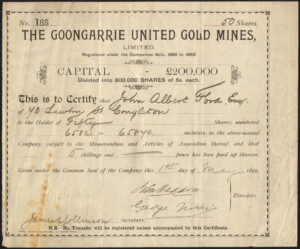 No. 185 50 Shares.
THE GOONGARRIE UNITED GOLD MINES,
LIMITED.
Registered under the Companies Acts, 1862 to 1893.
CAPITAL - £200,000
Divided into 800,000 SHARES of 5s each.
This is to Certify that John Albert Ford Esq
of 48 Lawton St Congleton
is the Holder of Fifty Shares, numbered
65821 to 65870 inclusive, in the above-named
Company, subject to the Memorandum and Articles of Association thereof, and that
5 shillings and pence has been paid up thereon.
Given under the Common Seal of the Company this 1st day of May
Directors.
George
James Secretary.
N.B. No Transfer will be registered unless accompanied by this Certificate.